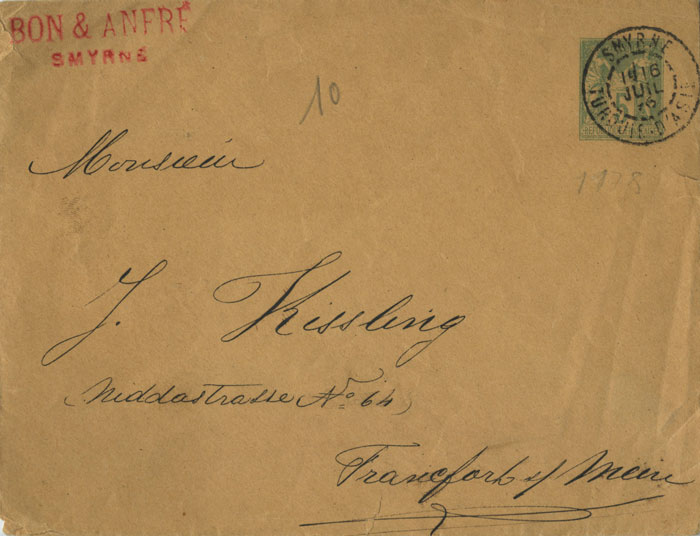 BON & ANFRE
SMYRNE
10
SMYRNE
16
JUIL
TURQUIE D'ASIE
1178
Monsieur
J. Kissling
Niddastrasse No. 64
Francfort s/ Main